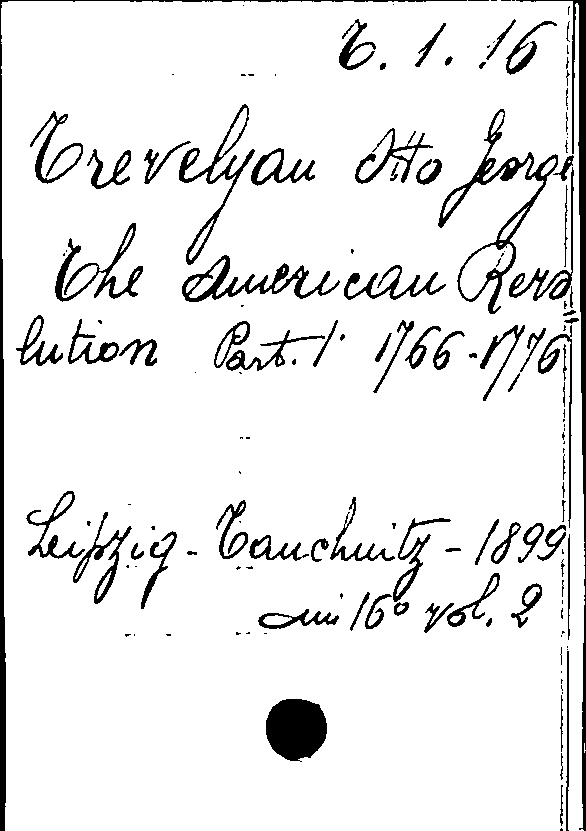 T. 1. 16
Trevelyan Otto George
The American Revo=
lution Part. I. 1766-1776
Leipzig - Tauchnitz - 1899
in 16° vol. 2